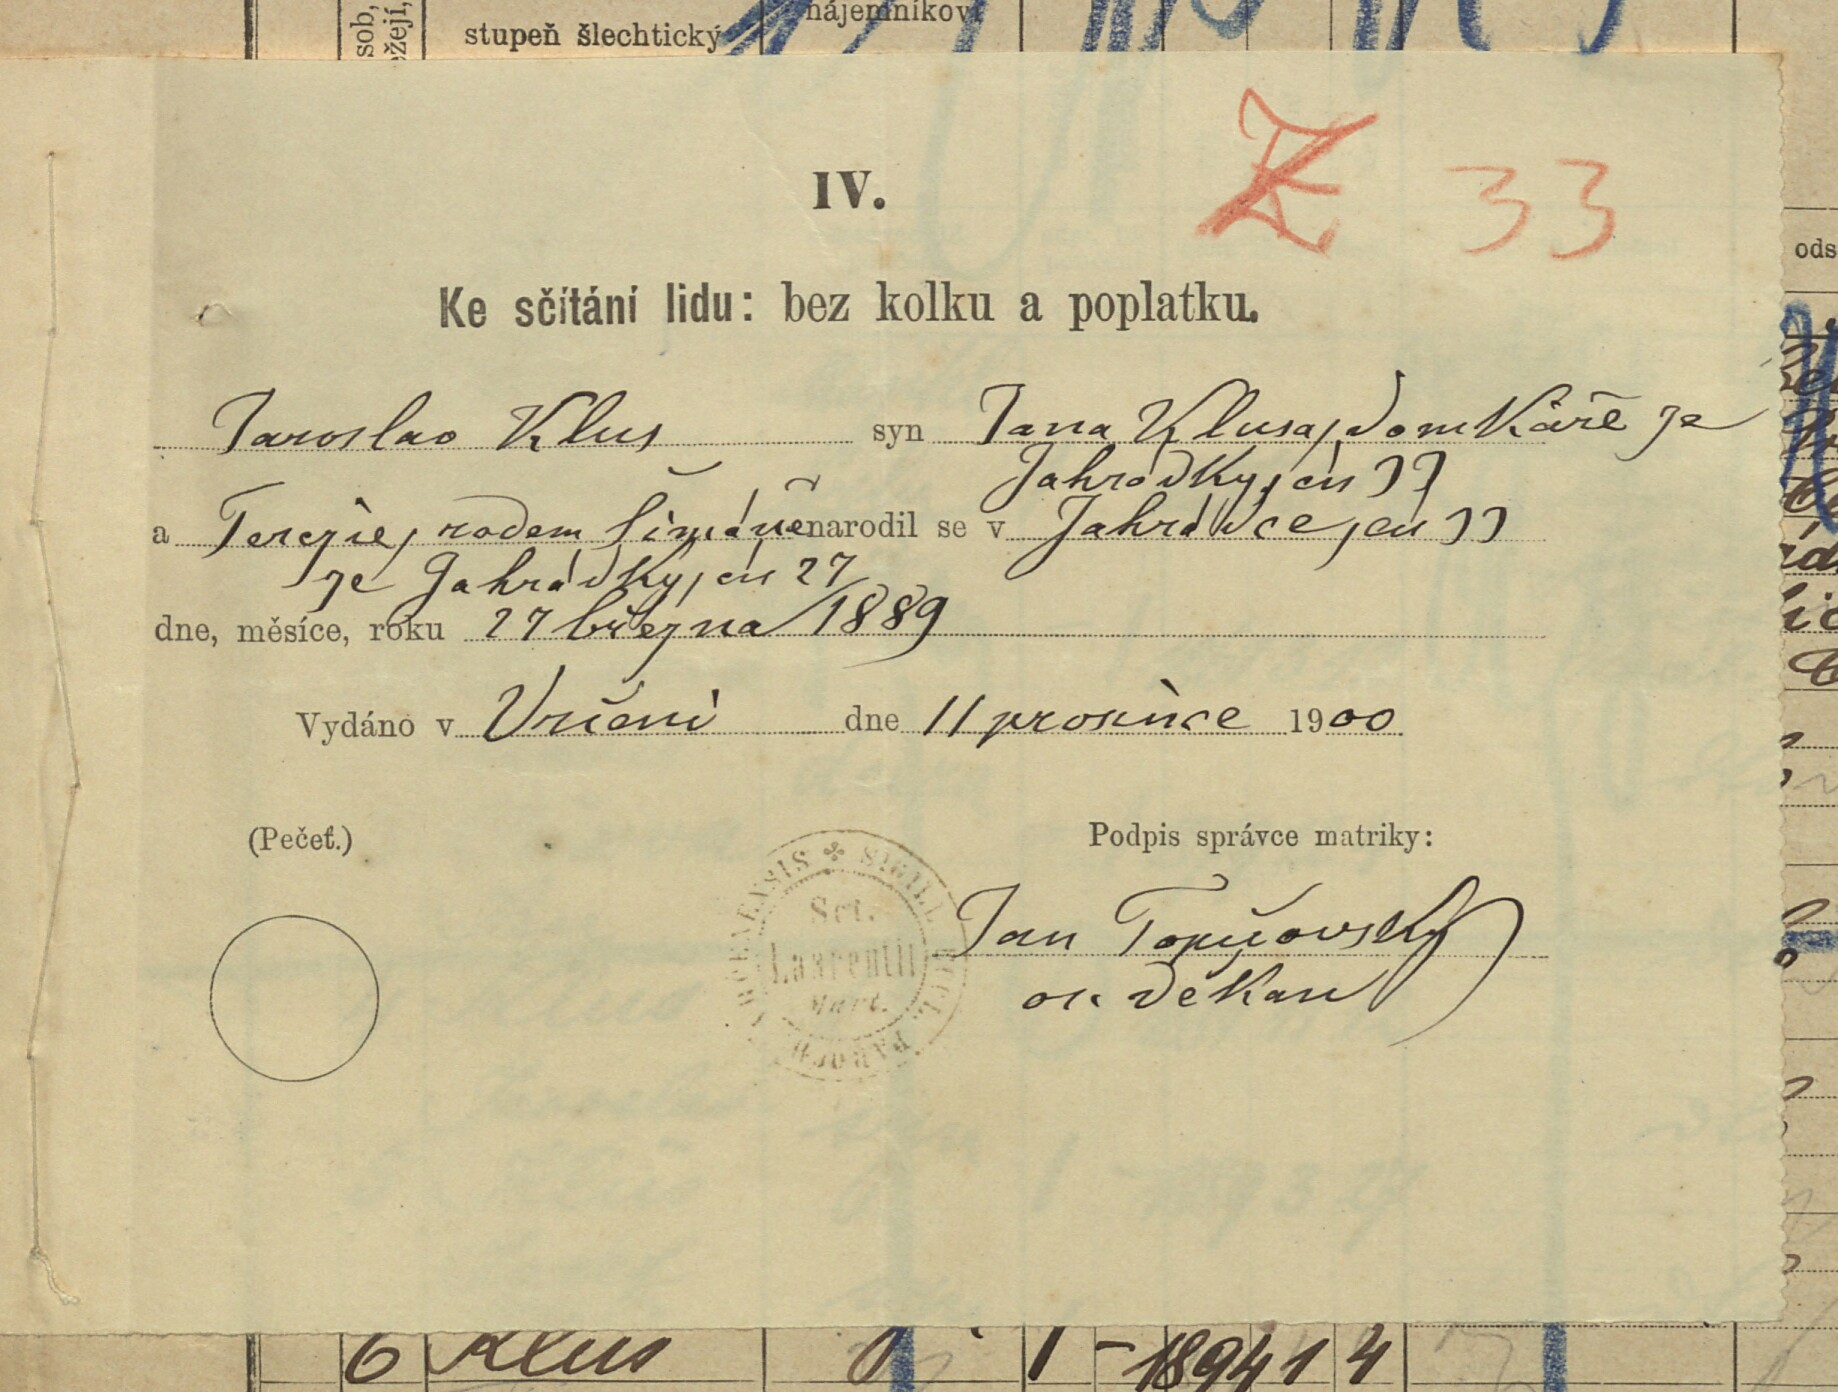 sob,
ožejí,
stupeň šlechtický
nájemníkovi
IV.
Z 33
ods
Ke sčítání lidu: bez kolku a poplatku.
Jaroslav Klus syn Jana Klusa, domkáře ze
Zahrádky, čís 33
a Terezie, rodem Šimáně narodil se v Zahrádce, čís 33
ze Zahrádky, čís 27
dne, měsíce, roku 27 března 1889
Vydáno v Vrčeni dne 11 prosince 1900
(Pečeť.)
Podpis správce matriky:
SIGILL PAROCH
Sct.
Laurentii
Mart.
Jan
os. děkan
6 Klus 1 - 1894 1 4